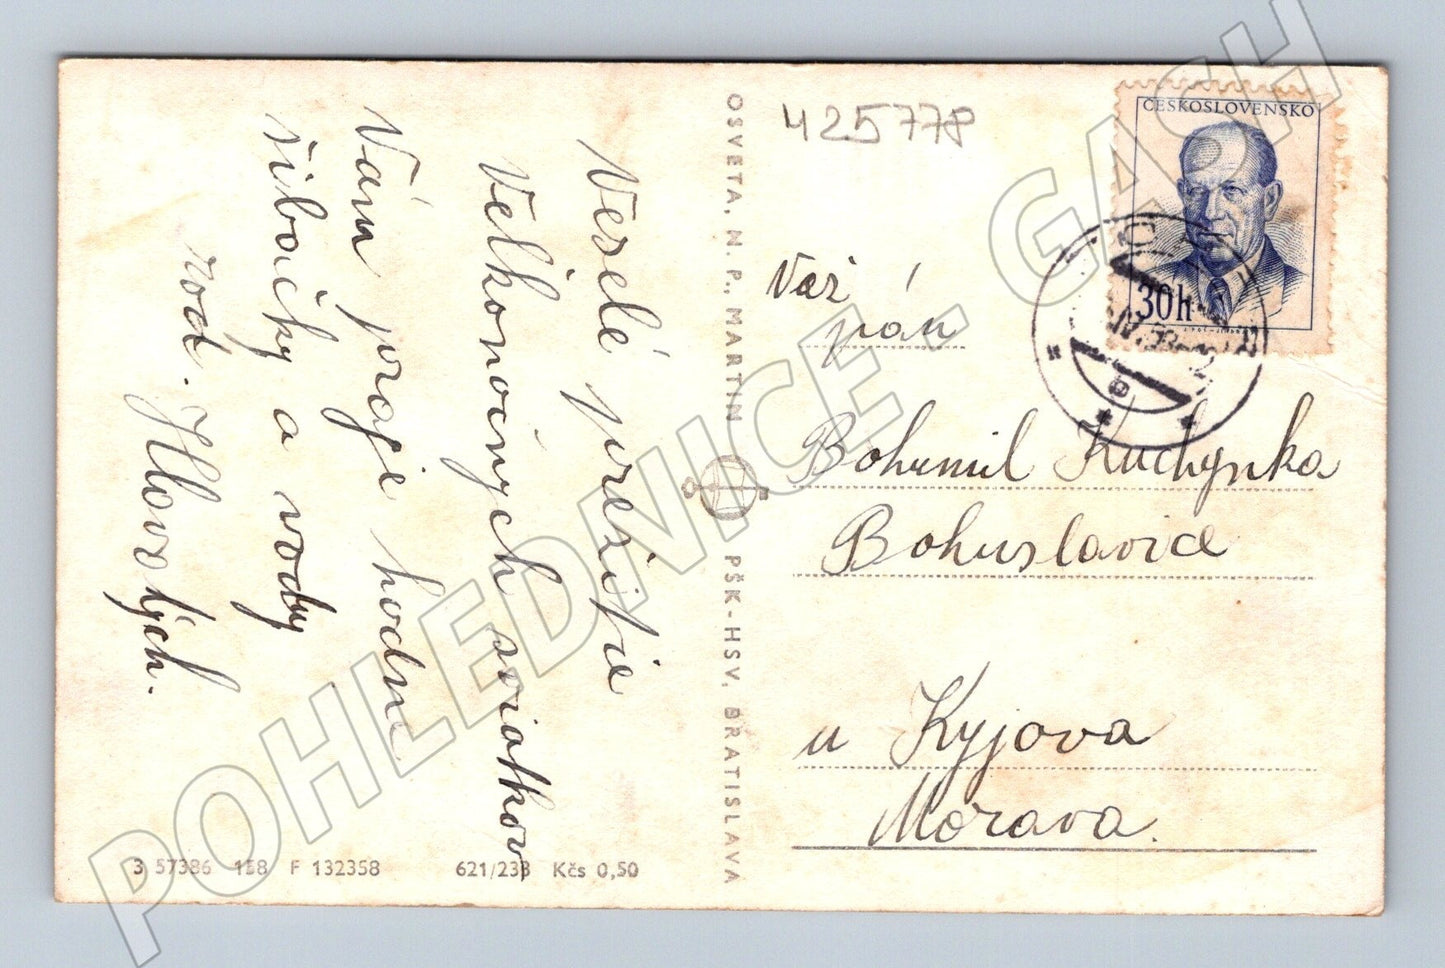 Veselé prežitie
Veľkonočných sviatkov
Vám praje hodne
šibačky a vody
rod. Hlovských.
OSVETA, N. P., MARTIN
PŠK-HSV, BRATISLAVA
425778
ČESKOSLOVENSKO
30h
Váž
pán
Bohumil Kuchynka
Bohuslavice
u Kyjova
Morava.
3 57386 158 F 132358 621/233 Kčs 0,50
POHLEDNICE - GASH